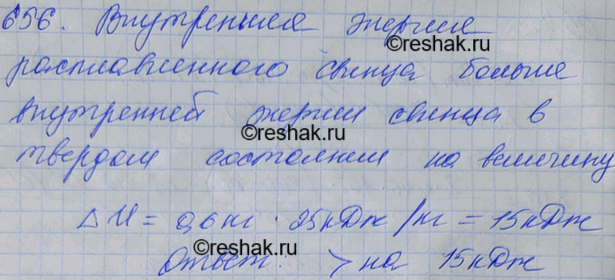 656. Внутренняя энергия
©reshak.ru
расплавленного свинца больше
внутренней энергии свинца в
©reshak.ru
твердом состоянии на величину
ΔU = 0,6 кг · 25 кДж/кг = 15 кДж
©reshak.ru
Ответ: > на 15 кДж